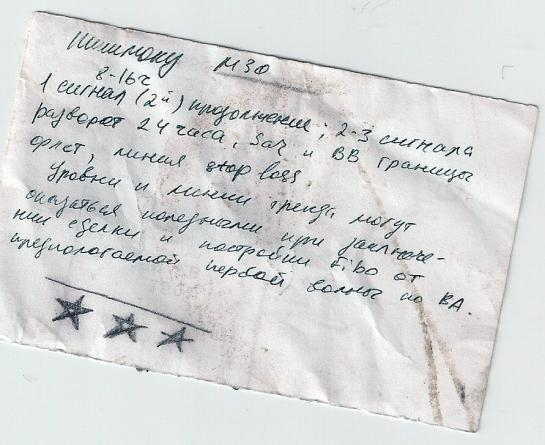 Ишимоку М30
8-16ч
1 сигнал (2й) продолжение; 2-3 сигнала
разворот 24 часа, Sar и BB границы
флет, линия stop loss
Уровни и линии тренда могут
оказаться полезными при заключе-
нии сделки и постройки Fibo от
предпологаемой первой волны по ВА.